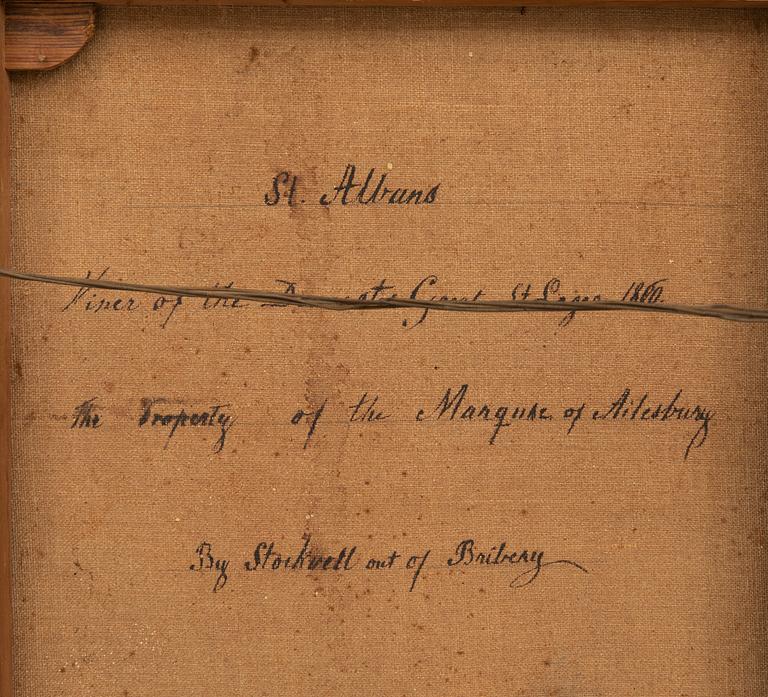 St. Albans
Winer of the Great St Leger 1860.
The Property of the Marquise of Ailesbury
By Stockwell out of Bribery